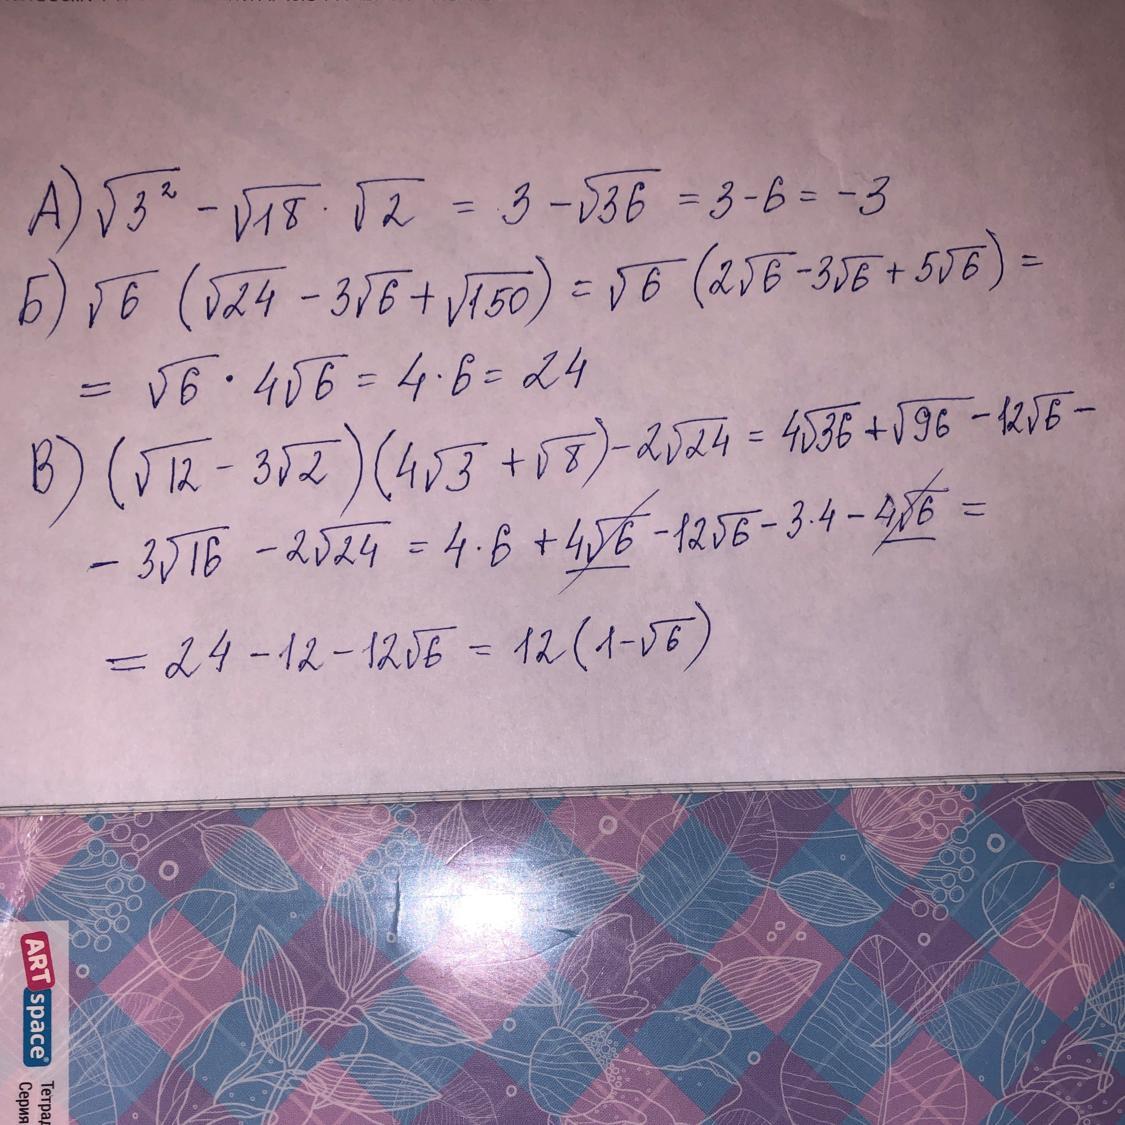 А) √3² - √18 · √2 = 3 - √36 = 3 - 6 = -3
Б) √6 (√24 - 3√6 + √150) = √6 (2√6 - 3√6 + 5√6) =
= √6 · 4√6 = 4 · 6 = 24
В) (√12 - 3√2)(4√3 + √8) - 2√24 = 4√36 + √96 - 12√6 -
- 3√16 - 2√24 = 4 · 6 + 4√6 - 12√6 - 3 · 4 - 4√6 =
= 24 - 12 - 12√6 = 12(1 - √6)
ART
space
Тетрад
Серия